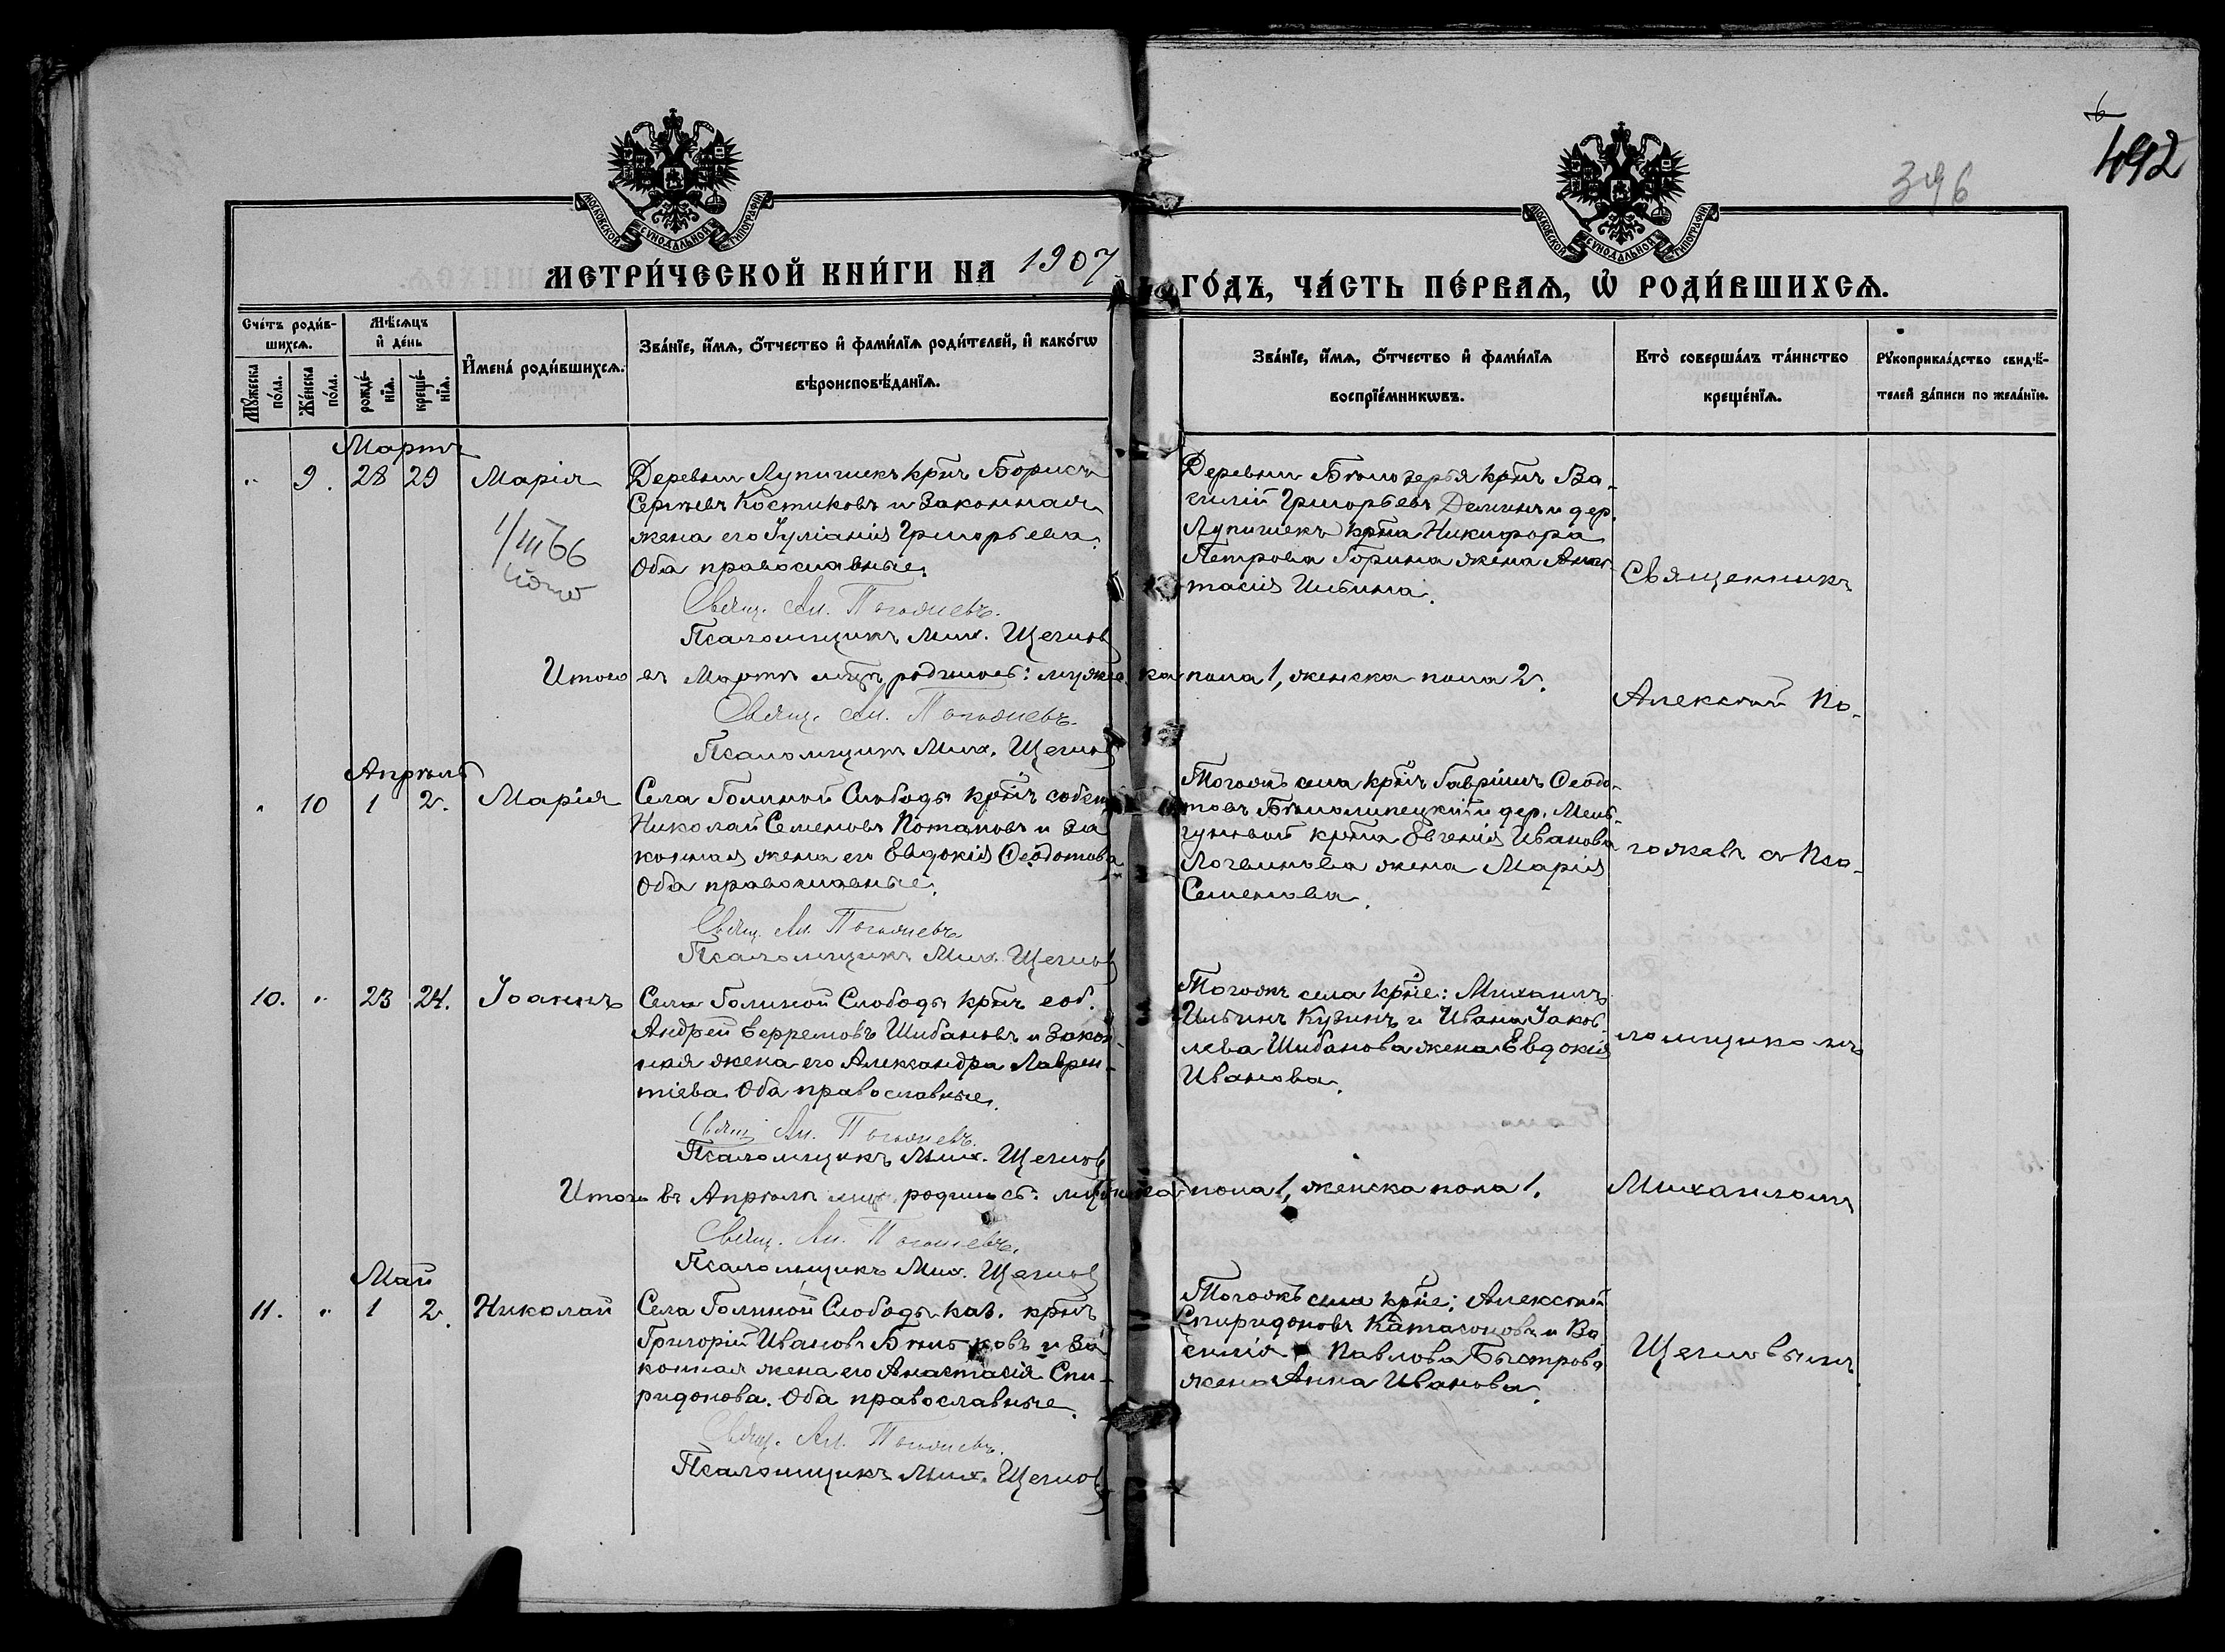 6
492
396
МОСКОВСКОЙ СѴНОДАЛЬНОЙ ТИПОГРАФІИ
МОСКОВСКОЙ СѴНОДАЛЬНОЙ ТИПОГРАФІИ
МЕТРИ́ЧЕСКОЙ КНИ́ГИ НА 1907
ГО́ДЪ, ЧА́СТЬ ПЕ́РВАѦ, Ѡ҆ РОДИ́ВШИХСѦ.
Сче́тъ роди́в-
шихсѧ.
Мꙋ́жеска по́ла.
Же́нска по́ла.
Мѣ́сѧцъ и҆ де́нь
рожде́-
нїѧ.
креще́-
нїѧ.
И҆мена̀ роди́вшихсѧ.
Зва́нїе, и҆́мѧ, ѻ҆́тчество и҆ фами́лїѧ роди́телей, и҆ како́гѡ
вѣроисповѣ́данїѧ.
Зва́нїе, и҆́мѧ, ѻ҆́тчество и҆ фами́лїѧ
воспрїе́мникѡвъ.
Кто̀ соверша́лъ та́инство
креще́нїѧ.
Рꙋкоприкла́дство свидѣ́-
телей за́писи по жела́нїю.
Мартъ
" 9. 28 29 Марія
1/III 66
Деревни Лупишекъ кр-нъ Борисъ
Сергѣевъ Костиковъ и законная
жена его Іуліанія Григорьева.
Оба православные.
Свящ. Ал. Погожевъ.
Псаломщикъ Мих. Щегловъ
Деревни Бѣлозерья кр-нъ Ва-
силій Григорьевъ Деминъ и дер.
Лупишекъ кр-на Никифора
Петрова Горина жена Анас-
тасія Ильина.
Итого въ Мартѣ мцѣ родилось: мужеска пола 1, женска пола 2.
Свящ. Ал. Погожевъ.
Псаломщикъ Мих. Щегловъ
Апрѣль
" 10 1 2. Марія
Села Голиной Слободы кр-нъ собст.
Николай Семеновъ Потаповъ и за
конная жена его Евдокія Ѳеодотова
Оба православные.
Свящ. Ал. Погожевъ
Псаломщикъ Мих. Щегловъ
Тогожъ села кр-нъ Гавріилъ Ѳеодо-
товъ Бѣлолипецкій и дер.
кр-на Евгенія Иванова
Логвинова жена Марія
Семенова.
10. " 23 24. Іоаннъ
Села Голиной Слободы кр-нъ соб.
Андрей Ефремовъ Шибановъ и закон-
ная жена его Александра Лаврен-
тіева. Оба православные.
Свящ. Ал. Погожевъ.
Псаломщикъ Мих. Щегловъ
Тогожъ села кр-не: Михаилъ
Ильинъ Кузинъ и Ивана Іаков-
лева Шибанова жена Евдокія
Иванова.
Итого въ Апрѣлѣ мцѣ родилось: мужеска пола 1, женска пола 1.
Свящ. Ал. Погожевъ.
Псаломщикъ Мих. Щегловъ
Май
11. " 1 2. Николай
Села Голиной Слободы каз. кр-нъ
Григорій Ивановъ и за
конная жена его Анастасія Спи-
ридонова. Оба православные.
Свящ. Ал. Погожевъ.
Псаломщикъ Мих. Щегловъ
Тогожъ села кр-не: Алексѣй
Спиридоновъ Катасоновъ и Ва
силія Павлова Быстрова
жена Анна Иванова.
Священникъ
Алексѣй По-
гожевъ съ Пса-
ломщикомъ
Михаиломъ
Щегловымъ.